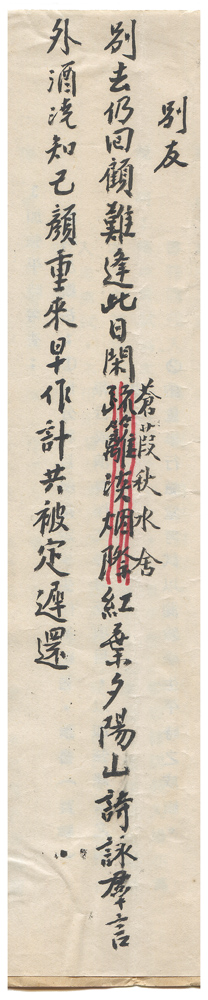 別友
蒼葭秋水舍
別去仍回顧難逢此日閑疏籬淡烟際紅葉夕陽山詩詠羣言
外酒知己顏重來早作計共被定遲還